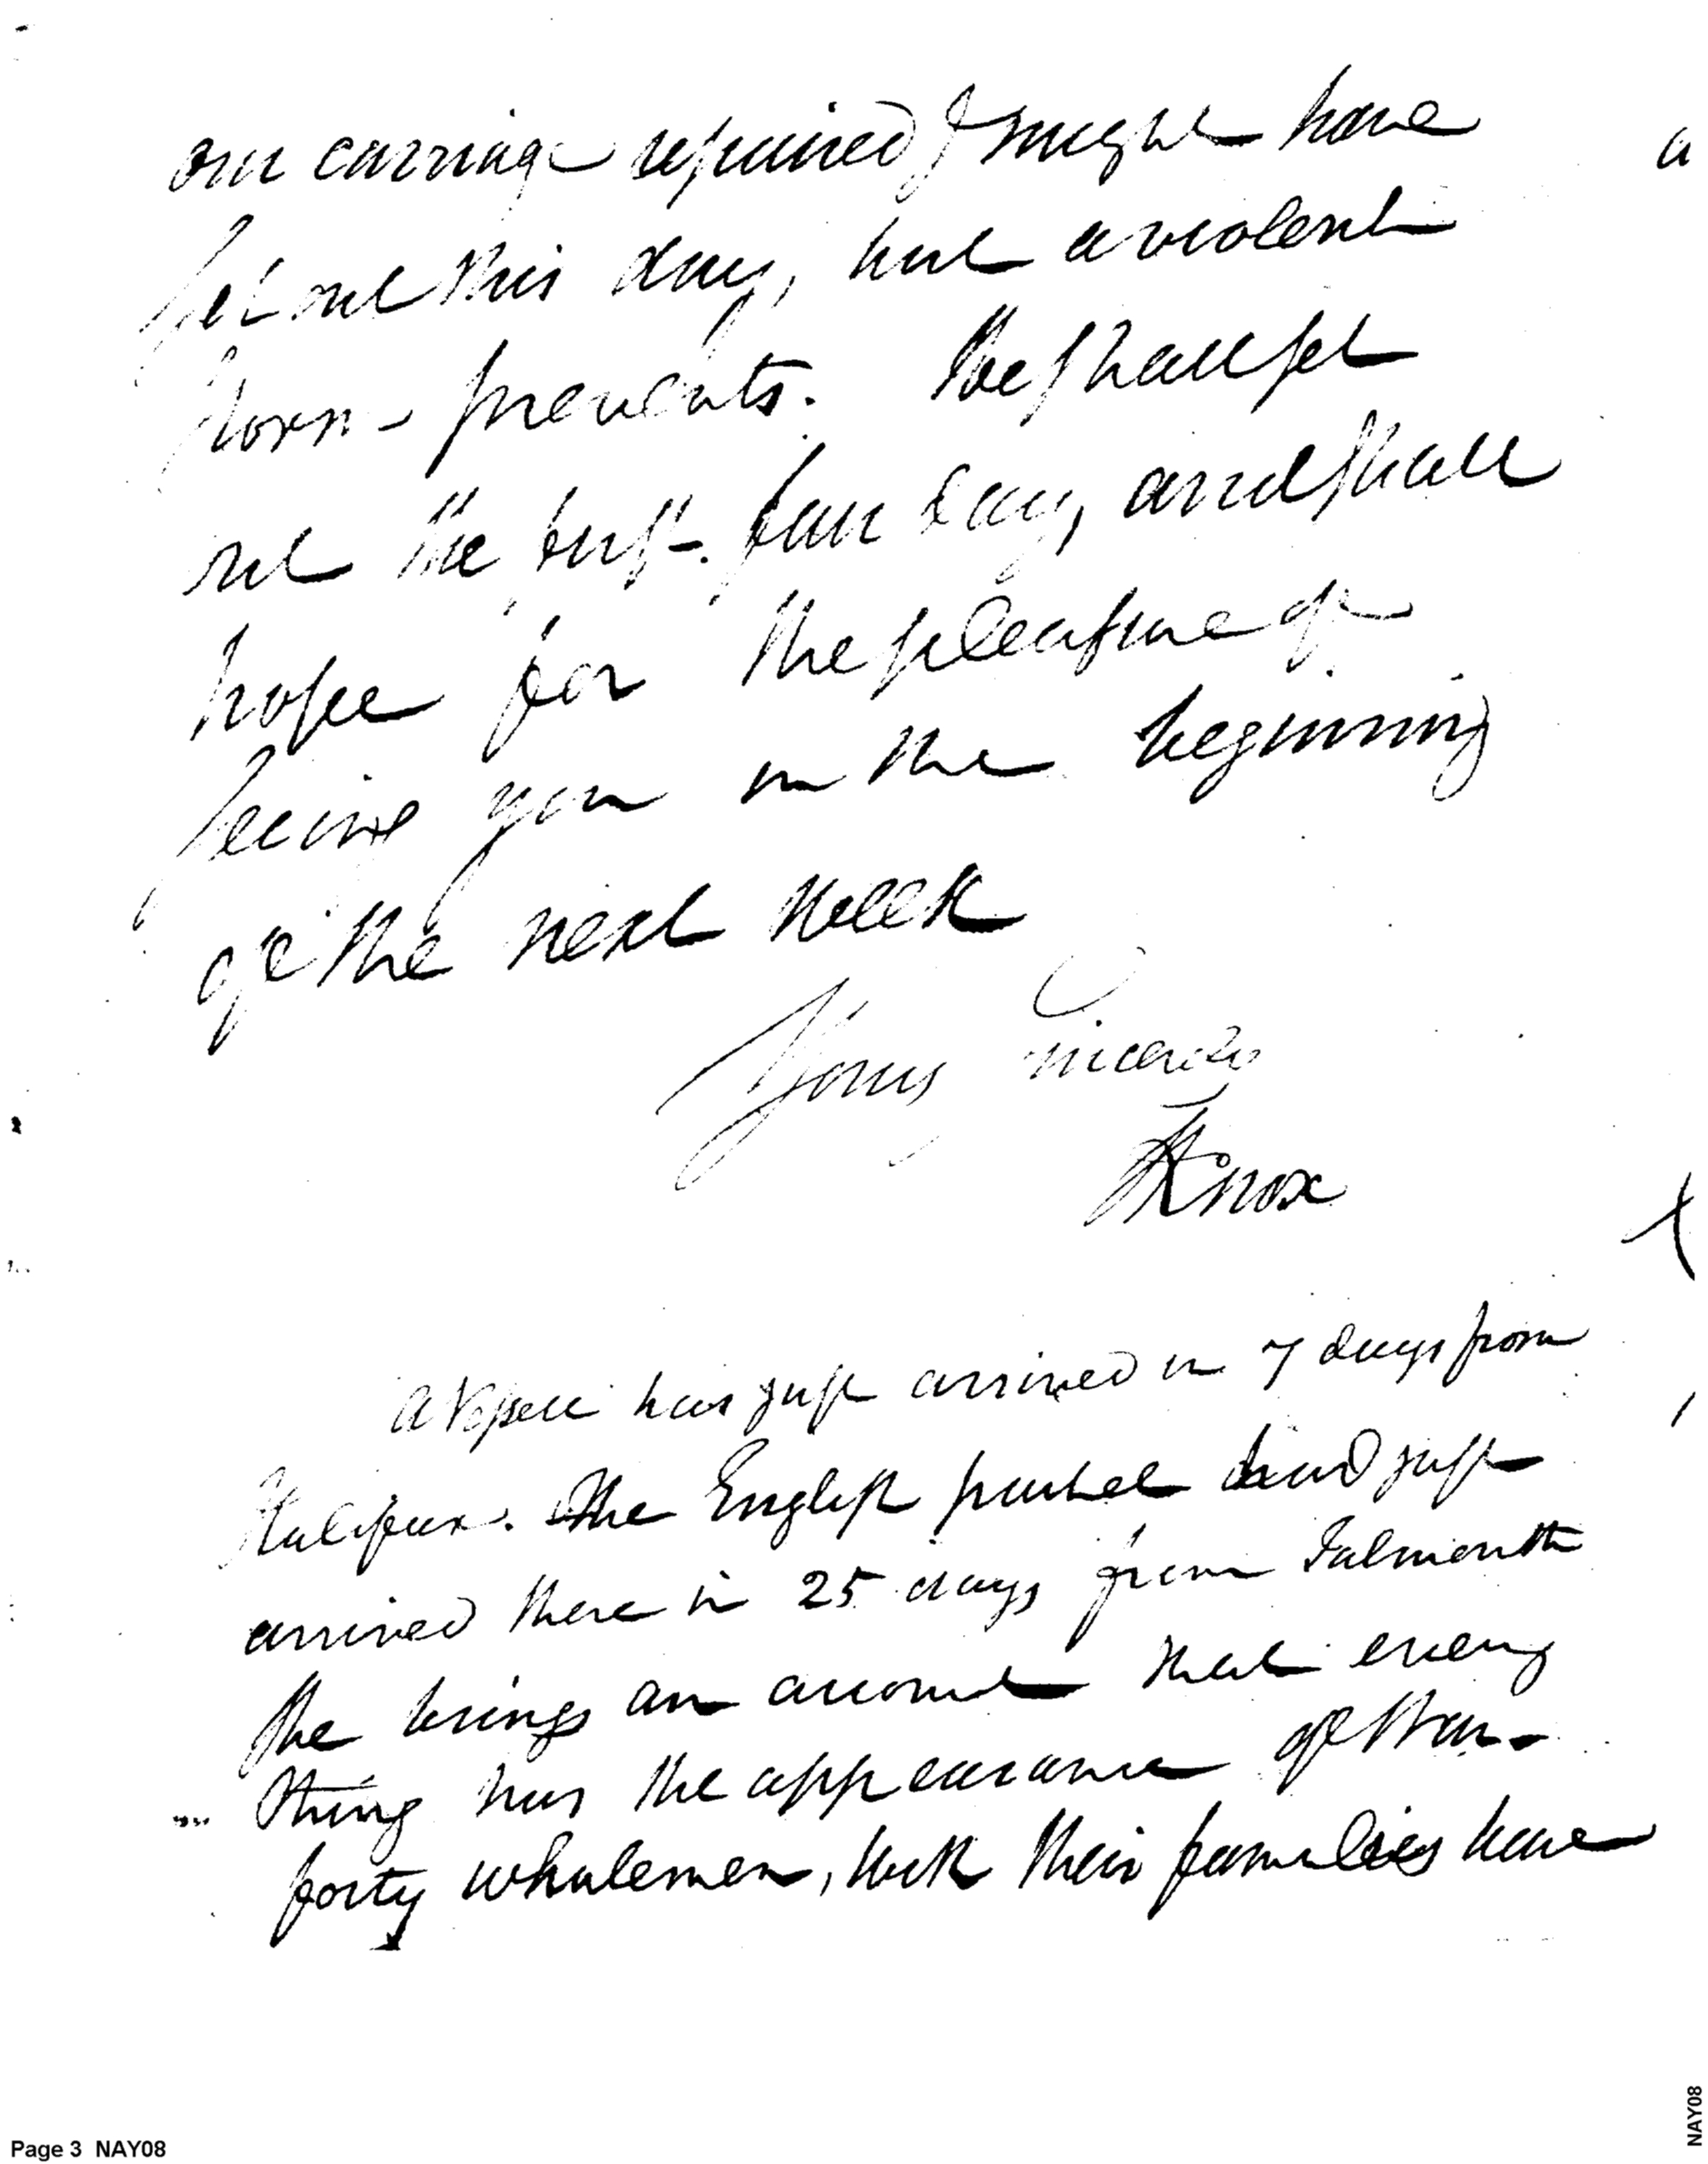 our carriage repaired & might have
set out this day, but a violent
storm prevents. We shall set
out the first fair day, and shall
hope for the pleasure of
seeing you in the beginning
of the next week
Yours sincerely
HKnox
A Vessel has just arrived in 7 days from
Halifax. The English packet had just
arrived there in 25 days from Falmouth
She brings an account that every
thing has the appearance of War-
forty whalemen, with their families have
Page 3 NAY08
NAY08